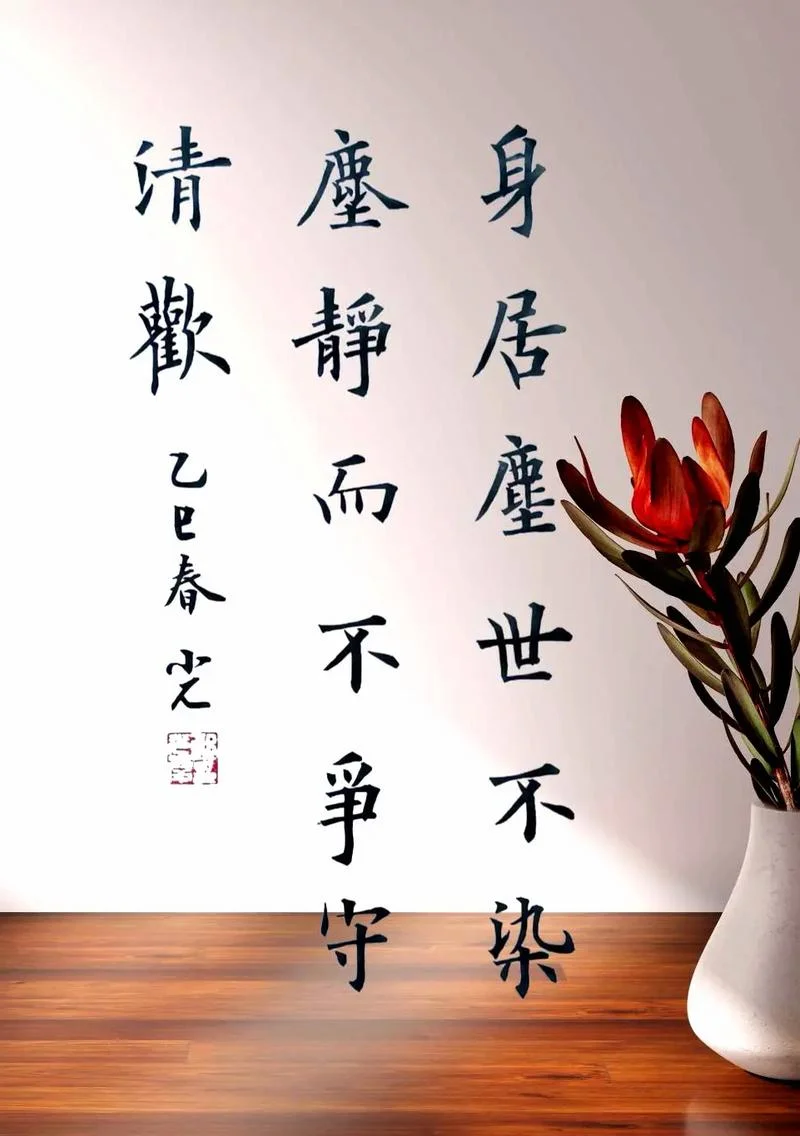 身居塵世不染
塵靜而不爭守
清歡
乙巳春 小元